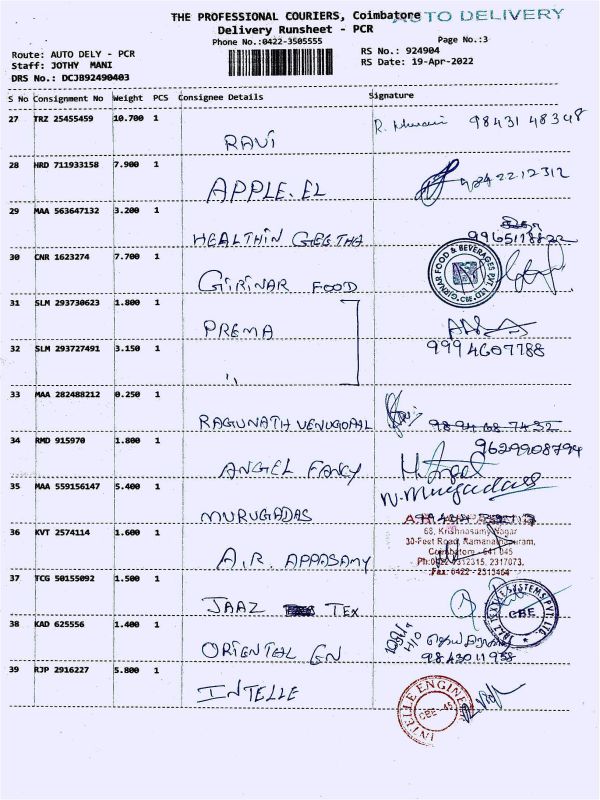 THE PROFESSIONAL COURIERS, Coimbatore AUTO DELIVERY
Delivery Runsheet - PCR
Phone No.:0422-3505555 Page No.:3
Route: AUTO DELY - PCR RS No.: 924904
Staff: JOTHY MANI RS Date: 19-Apr-2022
DRS No.: DCJB92490403
S No Consignment No Weight PCS Consignee Details Signature
27 TRZ 25455459 10.700 1
RAVI 98431 48348
28 HRD 711933158 7.900 1
APPLE.EL 98422 12312
29 MAA 563647132 3.200 1
HEALTHIN GEETHA 9965118822
30 CNR 1623274 7.700 1
GIRINAR FOOD GIRNAR FOOD & BEVERAGES PVT. LTD. CBE
31 SLM 293730623 1.800 1
PREMA
32 SLM 293727491 3.150 1 9994607788
"
33 MAA 282488212 0.250 1
RAGUNATH VENUGOPAL 9894 68 7432
34 RMD 915970 1.800 1 9629908794
ANGEL FANCY
35 MAA 559156147 5.400 1 N. Murugadass
MURUGADAS
36 KVT 2574114 1.600 1 68, Krishnasamy Nagar
30-Feet Road, Ramanathapuram,
Coimbatore - 641 045
A.R. APPASAMY Ph:0422-2312315, 2317073,
Fax: 0422 - 2313464
37 TCG 50155092 1.500 1
JAAZ TEX JAAZ TEXTILE SYSTEMS PVT. LTD. CBE
38 KAD 625556 1.400 1
ORIENTAL EN 9843011958
39 RJP 2916227 5.800 1
INTELLE INTELLE ENGINE CBE-45